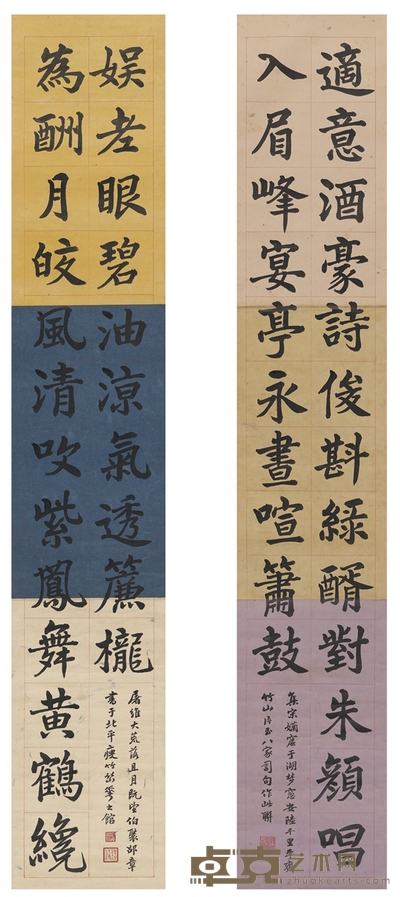 適意酒豪詩俊斟綠醑對朱顏唱
入眉峰宴亭永晝喧簫鼓
集宋嬾窟于湖夢窗安陸千里平齋
竹山片玉八家詞句作此聯
為酬月皎風清吹紫鳳舞黃鶴繞
娛老眼碧油涼氣透簾櫳
屠維大荒落且月既望伯褧邵章
書于北平瘦竹幽華之館
卓克艺术网
zhuokearts.com